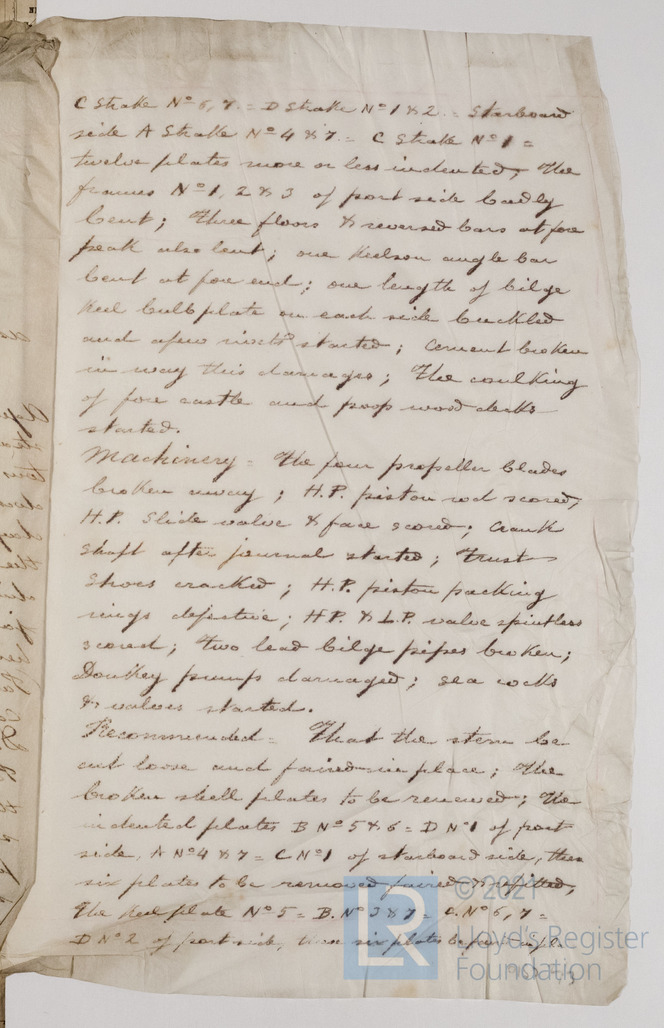 C Strake Nº 6, 7. = D Strake Nº 1 & 2. = Starboard
side A Strake Nº 4 & 7. = C Strake Nº 1 =
twelve plates more or less indented, The
frames Nº 1, 2 & 3 of port side badly
bent; three floors & reversed bars at fore
peak also bent; one keelson angle bar
bent at fore end; one length of bilge
keel bulb plate on each side buckled
and afew rivets started; cement broken
in way this damages; The caulking
of fore castle and poop wood decks
started.
Machinery = The four propeller blades
broken away; H.P. piston rod scored,
H.P. Slide valve & face scored; crank
shaft after journal started; trust
Shoes cracked; H.P. piston packing
rings defective; HP. & L.P. valve spintless
scored; two lead bilge pipes broken;
Donkey pumps damaged; sea cocks
& valves started.
Recommended = That the stem be
cut loose and faired in place; The
broken shell plates to be renewed; The
indented plates B Nº 5 & 6 = D Nº 1 of port
side, A Nº 4 & 7 = C Nº 1 of starboard side, these
six plates to be removed faired & refitted,
The keel plate Nº 5 = B. Nº 3 & 7 = C. Nº 6, 7 =
D Nº 2 of port side, these six plates be
© 2021
Lloyd's Register
Foundation
LR